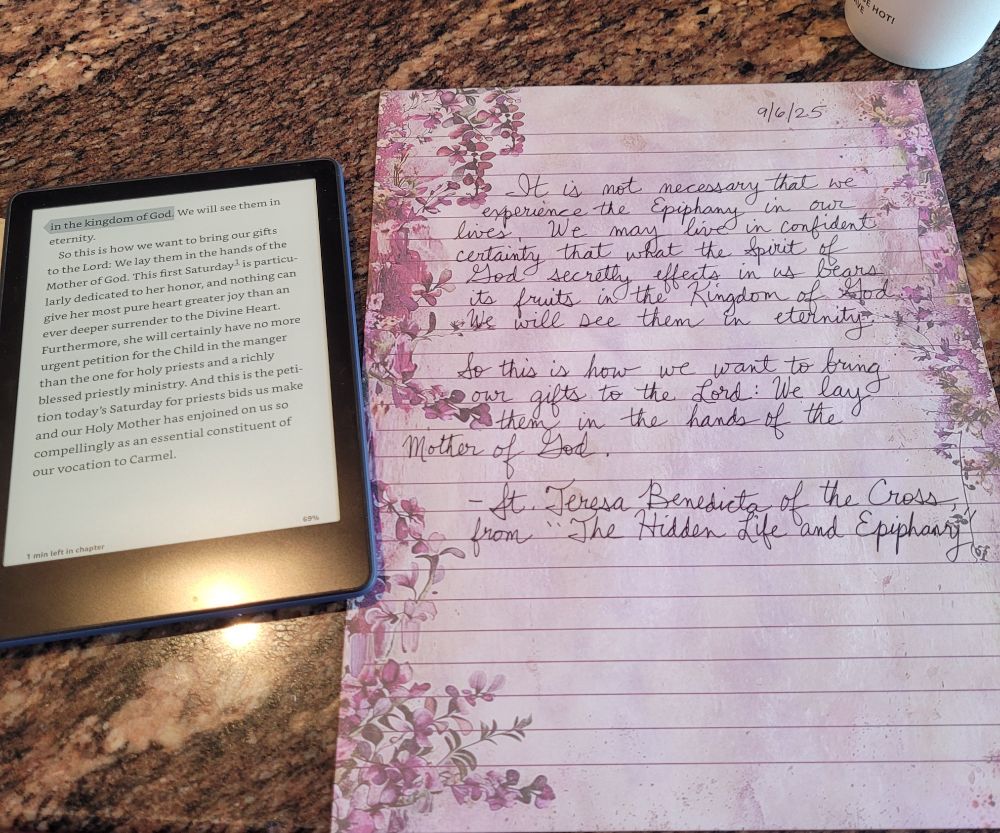 in the kingdom of God. We will see them in
eternity.
So this is how we want to bring our gifts
to the Lord: We lay them in the hands of the
Mother of God. This first Saturday¹ is particu-
larly dedicated to her honor, and nothing can
give her most pure heart greater joy than an
ever deeper surrender to the Divine Heart.
Furthermore, she will certainly have no more
urgent petition for the Child in the manger
than the one for holy priests and a richly
blessed priestly ministry. And this is the peti-
tion today's Saturday for priests bids us make
and our Holy Mother has enjoined on us so
compellingly as an essential constituent of
our vocation to Carmel.
69%
1 min left in chapter
9/6/25
It is not necessary that we
experience the Epiphany in our
lives. We may live in confident
certainty that what the Spirit of
God secretly effects in us bears
its fruits in the Kingdom of God.
We will see them in eternity.
So this is how we want to bring
our gifts to the Lord: We lay
them in the hands of the
Mother of God.
- St. Teresa Benedicta of the Cross,
from "The Hidden Life and Epiphany"
HOT!